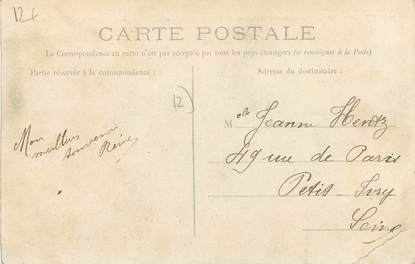 12€
CARTE POSTALE
La Correspondance au recto n'est pas acceptée par tous les pays étrangers (se renseigner à la Poste)
Partie réservée à la correspondance :
Adresse du destinataire :
(2)
Mon
meilleur
souvenir
René
Melle Jeanne Hentz
49 rue de Paris
Petit-Ivry
Seine